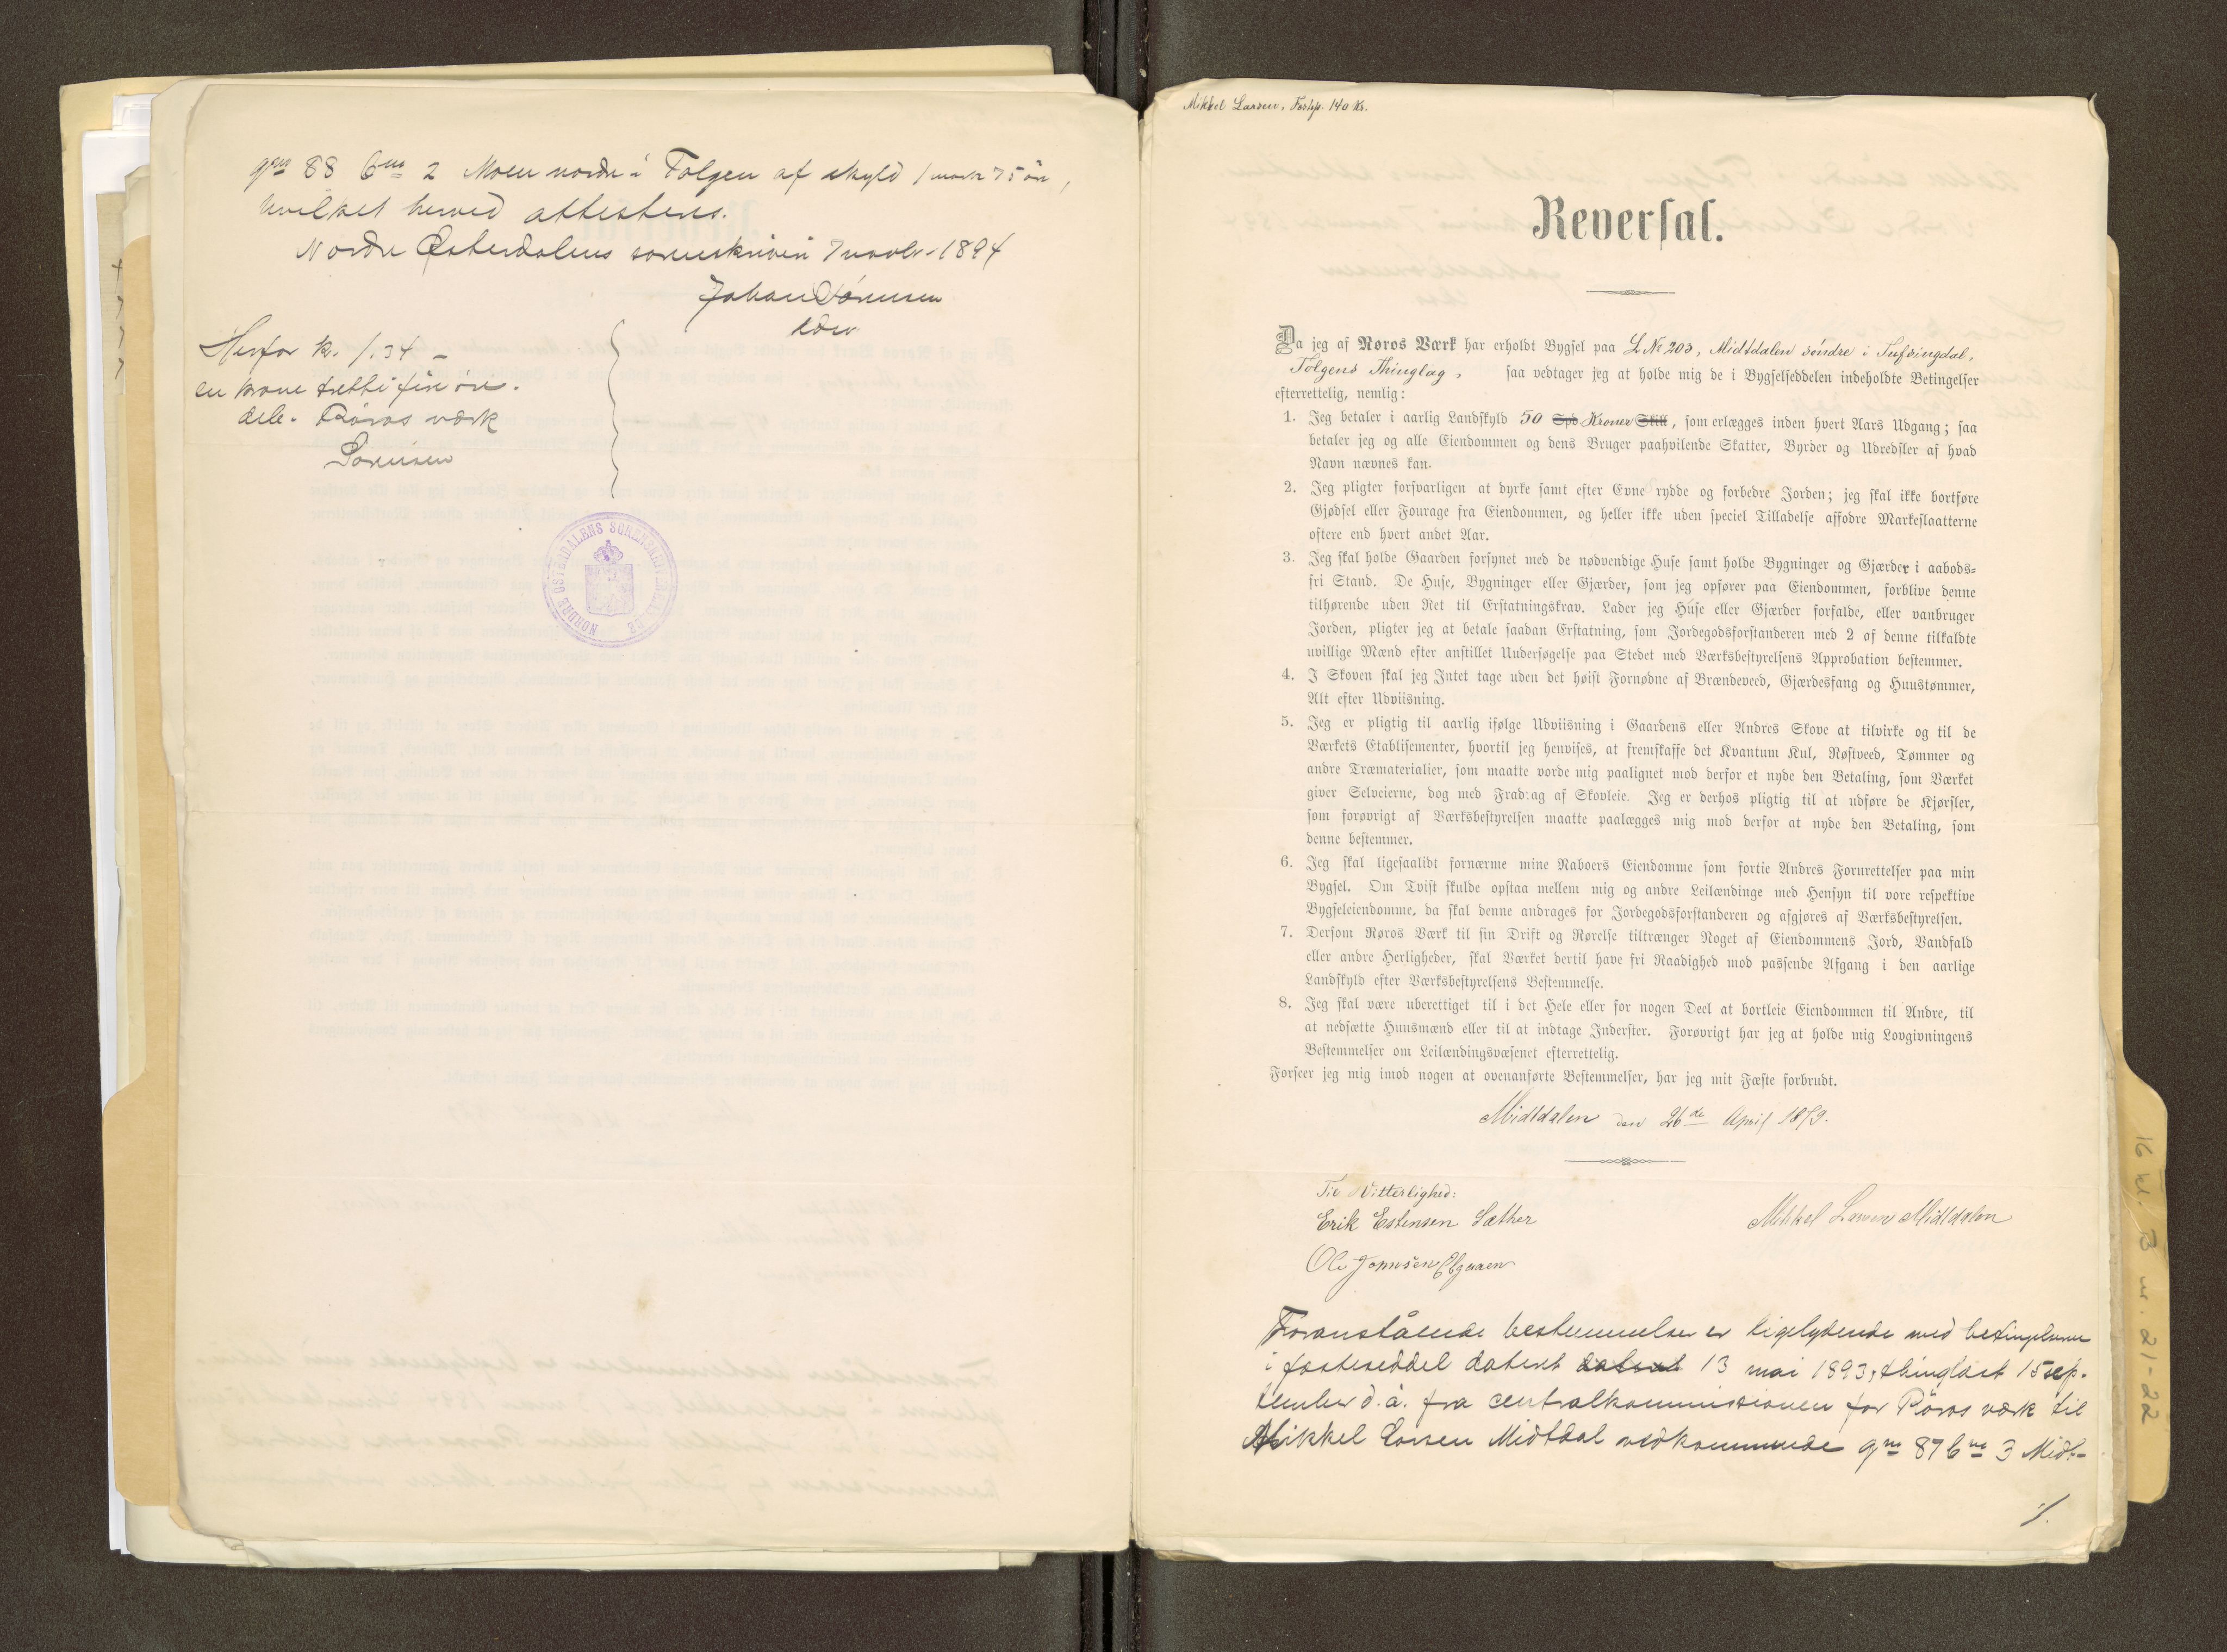 gno 88 bno 2 Moen nordre i Tolgen af skyld 1 mark 75 øre,
hvilket herved attesteres.
Nordre Østerdalens sorenskriveri 7 novbr. 1894
Johan Sørensen
Herfor kr. 1.34 –
en krone tretti fire øre.
dele. Røros værk
Sørensen
NORDRE ØSTERDALENS SORENSKRIVEREMBEDE
Mikkel Larsen, Fostp. 140 Kr.
Reversal.
Da jeg af Røros Værk har erholdt Bygsel paa L No 203, Middtdalen søndre i Tufsingdal,
Tolgens Thinglag, saa vedtager jeg at holde mig de i Bygselseddelen indeholdte Betingelser
efterrettelig, nemlig:
1. Jeg betaler i aarlig Landskyld 50 Spd Kroner Skill, som erlægges inden hvert Aars Udgang; saa
betaler jeg og alle Eiendommen og dens Bruger paahvilende Skatter, Byrder og Udredsler af hvad
Navn nævnes kan.
2. Jeg pligter forsvarligen at dyrke samt efter Evne rydde og forbedre Jorden; jeg skal ikke bortføre
Gjødsel eller Fourage fra Eiendommen, og heller ikke uden speciel Tilladelse affodre Markeslaatterne
oftere end hvert andet Aar.
3. Jeg skal holde Gaarden forsynet med de nødvendige Huse samt holde Bygninger og Gjærder i aabods-
fri Stand. De Huse, Bygninger eller Gjærder, som jeg opfører paa Eiendommen, forblive denne
tilhørende uden Ret til Erstatningskrav. Lader jeg Huse eller Gjærder forfalde, eller vanbruger
Jorden, pligter jeg at betale saadan Erstatning, som Jordegodsforstanderen med 2 af denne tilkaldte
uvillige Mænd efter anstillet Undersøgelse paa Stedet med Værksbestyrelsens Approbation bestemmer.
4. I Skoven skal jeg Intet tage uden det høist Fornødne af Brændeveed, Gjærdesfang og Huustømmer,
Alt efter Udviisning.
5. Jeg er pligtig til aarlig ifølge Udviisning i Gaardens eller Andres Skove at tilvirke og til de
Værkets Etablisementer, hvortil jeg henvises, at fremskaffe det Kvantum Kul, Røstveed, Tømmer og
andre Træmaterialier, som maatte vorde mig paalignet mod derfor et nyde den Betaling, som Værket
giver Selveierne, dog med Fradrag af Skovleie. Jeg er derhos pligtig til at udføre de Kjørsler,
som forøvrigt af Værksbestyrelsen maatte paalægges mig mod derfor at nyde den Betaling, som
denne bestemmer.
6. Jeg skal ligesaalidt fornærme mine Naboers Eiendomme som fortie Andres Forurettelser paa min
Bygsel. Om Tvist skulde opstaa mellem mig og andre Leilændinge med Hensyn til vore respektive
Bygseleiendomme, da skal denne andrages for Jordegodsforstanderen og afgjøres af Værksbestyrelsen.
7. Dersom Røros Værk til sin Drift og Rørelse tiltrænger Noget af Eiendommens Jord, Vandfald
eller andre Herligheder, skal Værket dertil have fri Raadighed mod passende Afgang i den aarlige
Landskyld efter Værksbestyrelsens Bestemmelse.
8. Jeg skal være uberettiget til i det Hele eller for nogen Deel at bortleie Eiendommen til Andre, til
at nedsætte Huusmænd eller til at indtage Inderster. Forøvrigt har jeg at holde mig Lovgivningens
Bestemmelser om Leilændingsvæsenet efterrettelig.
Forseer jeg mig imod nogen at ovenanførte Bestemmelser, har jeg mit Fæste forbrudt.
Middtdalen den 26de April 1879.
Til Vitterlighed:
Erik Estensen Sæther
Mikkel Larsen Middtdalen
Ole Jonnsen Elgaaen
Foranstående bestemmelser er ligelydende med betingelserne
i fæsteseddel dateret dateret 13 mai 1893, thinglæst 15 sep-
tember d. å. fra centralkommissionen for Røros værk til
Mikkel Larsen Midtdal vedkommende gno 87 bno 3 Midt-
1/.
16 kl. B nr. 21-22